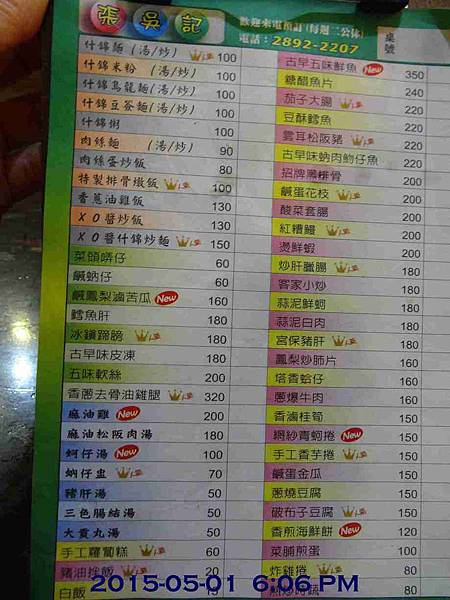 張吳記
歡迎來電預訂「每週二公休」
電話：2892-2207
桌號
什錦麵（湯/炒） 100
什錦米粉（湯/炒） 100
什錦烏龍麵（湯/炒） 100
什錦豆簽麵（湯/炒） 100
什錦粥 100
肉絲麵（湯/炒） 90
肉絲蛋炒飯 80
特製排骨燉飯 100
香蔥油雞飯 130
XO醬炒飯 130
XO醬什錦炒麵 150
菜頭嗊仔 60
鹹蚋仔 60
鹹鳳梨滷苦瓜 New 160
鱈魚肝 180
冰鎮蹄膀 180
古早味皮凍 180
五味軟絲 200
香蔥去骨油雞腿 320
麻油雞 New 200
麻油松阪肉湯 180
蚵仔湯 New 100
蚋仔盅 70
豬肝湯 50
三色腸結湯 50
大貢丸湯 50
手工蘿蔔糕 60
豬油拌飯 20
白飯 15
古早五味鮮魚 New 350
糖醋魚片 240
茄子大腸 220
豆酥鱈魚 220
雲耳松阪豬 220
古早味蚋肉魩仔魚 220
招牌黑排骨 200
鹹蛋花枝 200
酸菜套腸 200
紅糟鰻 200
燙鮮蝦 200
炒肝臘腸 180
客家小炒 180
蒜泥鮮蚵 180
蒜泥白肉 180
宮保豬肝 180
鳳梨炒肺片 160
塔香蛤仔 160
蔥爆牛肉 160
香滷桂筍 150
網紗青蚵捲 New 150
手工香芋捲 150
鹹蛋金瓜 150
蔥燒豆腐 150
破布子豆腐 150
香煎海鮮餅 New 120
菜脯煎蛋 100
炸雞捲 100
80
2015-05-01 6:06 PM